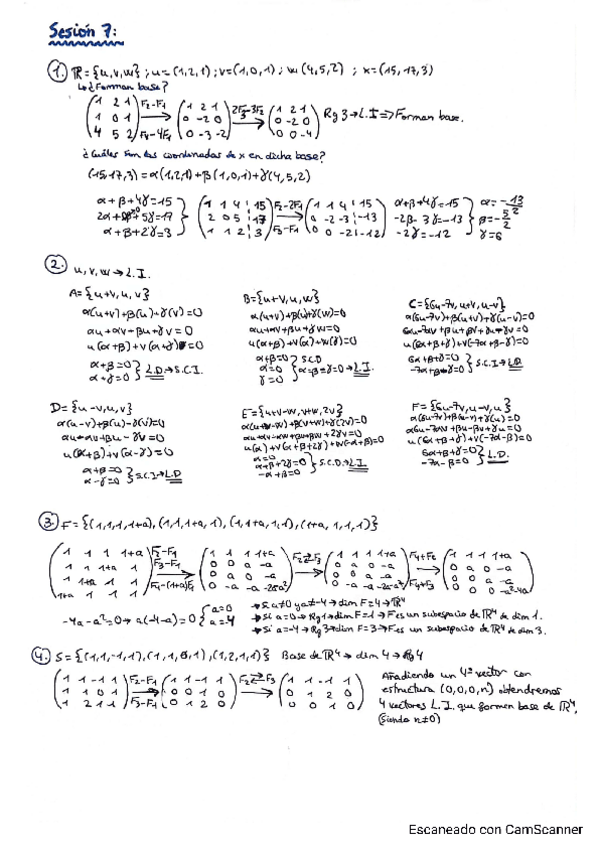 Sesión 7:
1. R = {u,v,w} ; u=(1,2,1) ; v=(1,0,1) ; w(4,5,2) ; x=(15,17,3)
↳ ¿Forman base?
(1 2 1; 1 0 1; 4 5 2) F2-F1, F3-4F1 → (1 2 1; 0 -2 0; 0 -3 -2) → (1 2 1; 0 -2 0; 0 0 -4) Rg 3 → L.I ⇒ Forman base.
¿Cuáles son las coordenadas de x en dicha base?
(15,17,3) = α(1,2,1)+β(1,0,1)+γ(4,5,2)
α+β+4γ=15
2α+5γ=17
α+β+2γ=3
(1 1 4 | 15; 2 0 5 | 17; 1 1 2 | 3) F2-2F1, F3-F1 → (1 1 4 | 15; 0 -2 -3 | -13; 0 0 -2 | -12)
α+β+4γ=15
-2β-3γ=-13
-2γ=-12
α=-13/2
β=-5/2
γ=6
2. u,v,w → L.I.
A={u+v,u,v}
α(u+v)+β(u)+γ(v)=0
αu+αv+βu+γv=0
u(α+β)+v(α+γ)=0
α+β=0
α+γ=0 } L.D. → S.C.I.
B={u+v,u,w}
α(u+v)+β(u)+γ(w)=0
αu+αv+βu+γw=0
u(α+β)+v(α)+w(γ)=0
α+β=0
α=0
γ=0 } S.C.D α=β=γ=0 → L.I.
C={6u-7v,u+v,u-v}
α(6u-7v)+β(u+v)+γ(u-v)=0
6αu-7αv+βu+βv+γu-γv=0
u(6α+β+γ)+v(-7α+β-γ)=0
6α+β+γ=0
-7α+β-γ=0 } S.C.I → L.D
D={u-v,u,v}
α(u-v)+β(u)-γ(v)=0
αu-αv+βu-γv=0
u(α+β)+v(α-γ)=0
α+β=0
α-γ=0 } S.C.I → L.D
E={u+v-w,v+w,2v}
α(u+v-w)+β(v+w)+γ(2v)=0
αu+αv-αw+βv+βw+2γv=0
u(α)+v(α+β+2γ)+w(-α+β)=0
α=0
α+β+2γ=0
-α+β=0 } S.C.D → L.I.
F={6u-7v,u-v,u}
α(6u-7v)+β(u-v)+γ(u)=0
α6u-7αv+βu-βv+γu=0
u(6α+β+γ)+v(-7α-β)=0
6α+β+γ=0
-7α-β=0 } L.D.
3. F={(1,1,1,1+a),(1,1,1+a,1),(1,1+a,1,1),(1+a,1,1,1)}
(1 1 1 1+a; 1 1 1+a 1; 1 1+a 1 1; 1+a 1 1 1) F2-F1, F3-F1, F4-(1+a)F1 → (1 1 1 1+a; 0 0 a -a; 0 a 0 -a; 0 -a -a -2a-a²) F2⇄F3 → (1 1 1 1+a; 0 a 0 -a; 0 0 a -a; 0 -a -a -2a-a²) → (1 1 1 1+a; 0 a 0 -a; 0 0 a -a; 0 0 0 -a²-4a)
-4a-a²=0 → a(-4-a)=0 { a=0
a=-4
→ Si a≠0 y a≠-4 → dim F=4 → R⁴
→ Si a=0 → Rg1 → dim F=1 → F es un subespacio de R⁴ de dim 1.
→ Si a=-4 → Rg3 → dim F=3 → F es un subespacio de R⁴ de dim 3.
4. S={(1,1,-1,1),(1,1,0,1),(1,2,1,1)} Base de R⁴ → dim 4 → Rg 4
(1 1 -1 1; 1 1 0 1; 1 2 1 1) F2-F1, F3-F1 → (1 1 -1 1; 0 0 1 0; 0 1 2 0) F2⇄F3 → (1 1 -1 1; 0 1 2 0; 0 0 1 0)
Añadiendo un 4º vector con
estructura (0,0,0,n) obtendremos
4 vectores L.I. que formen base de R⁴.
(siendo n≠0)
Escaneado con CamScanner